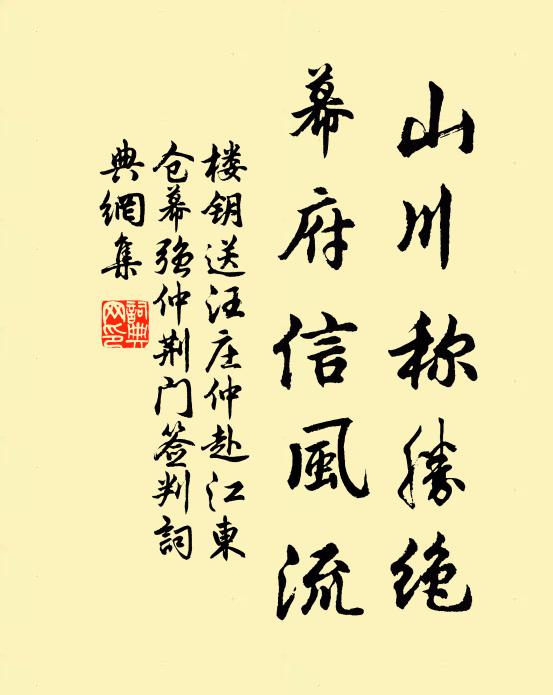 山川称勝绝
幕府信風流
楼钥送汪庄仲赴江東
仓幕强仲荆门签判詞
典網集
詞典網印